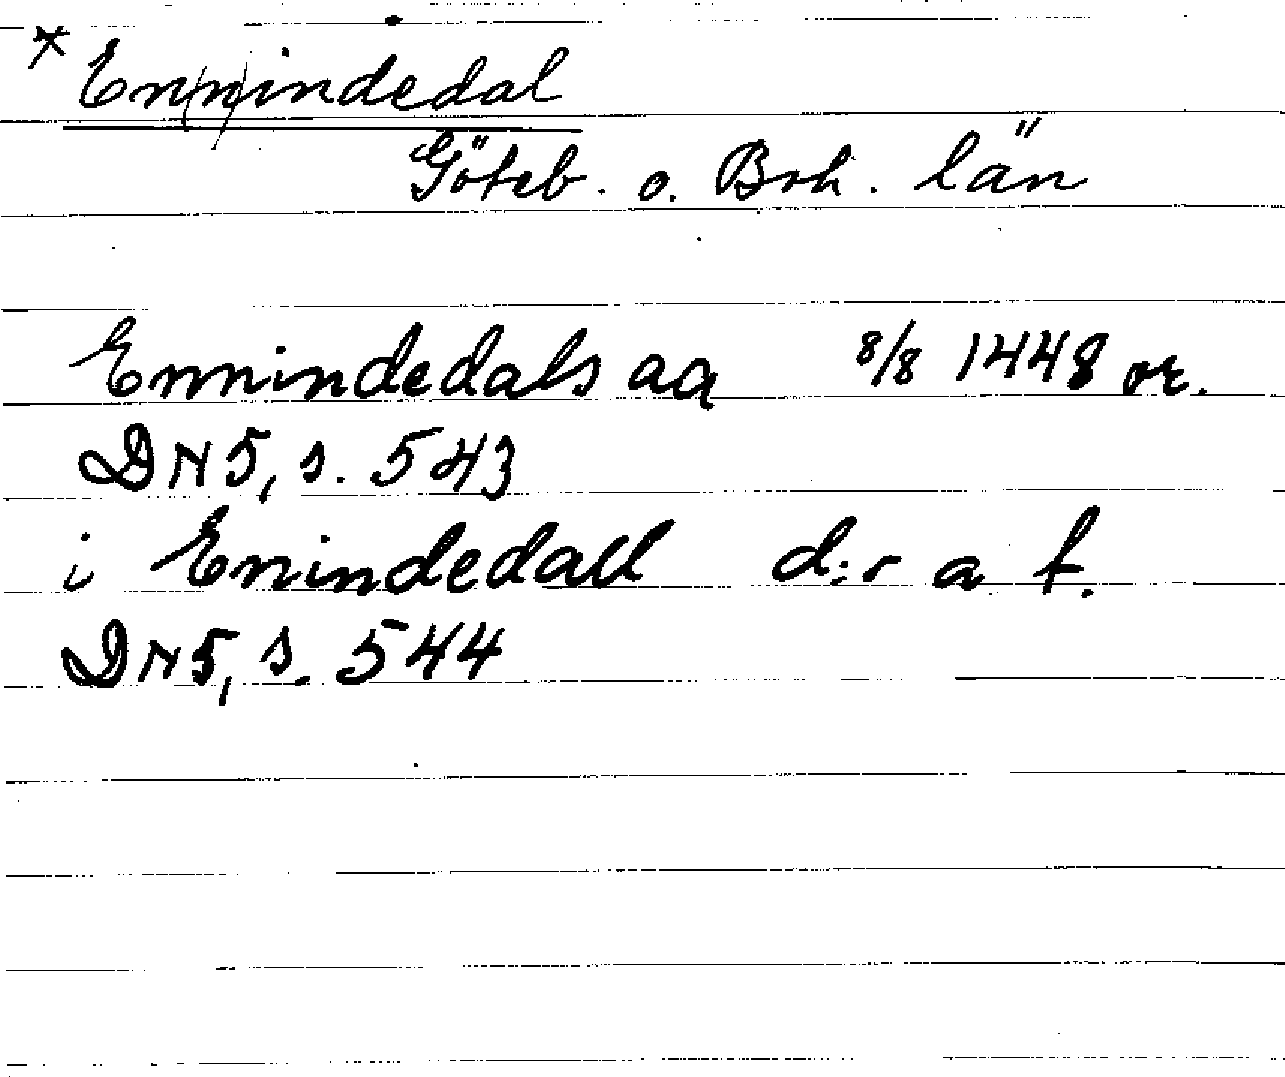 * En(n)indedal
Göteb. o. Boh. län
Ennindedals aa 8/8 1448 or.
DN 5, s. 543
i Enindedall d:o a f.
DN 5, s. 544